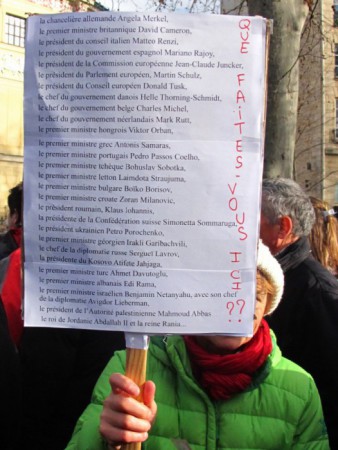 la chancelière allemande Angela Merkel,
le premier ministre britannique David Cameron,
le président du conseil italien Matteo Renzi,
le président du gouvernement espagnol Mariano Rajoy,
le président de la Commission européenne Jean-Claude Juncker,
le président du Parlement européen, Martin Schulz,
le président du Conseil européen Donald Tusk,
le chef du gouvernement danois Helle Thorning-Schmidt,
le chef du gouvernement belge Charles Michel,
le chef du gouvernement néerlandais Mark Rutt,
le premier ministre hongrois Viktor Orban,
le premier ministre grec Antonis Samaras,
le premier ministre portugais Pedro Passos Coelho,
le premier ministre tchèque Bohuslav Sobotka,
le premier ministre letton Laimdota Straujuma,
le premier ministre bulgare Boïko Borisov,
le premier ministre croate Zoran Milanovic,
le président roumain, Klaus Iohannis,
la présidente de la Confédération suisse Simonetta Sommaruga,
le président ukrainien Petro Porochenko,
le premier ministre géorgien Irakli Garibachvili,
le chef de la diplomatie russe Sergueï Lavrov,
la présidente du Kosovo Atifete Jahjaga,
le premier ministre turc Ahmet Davutoglu,
le premier ministre albanais Edi Rama,
le premier ministre israélien Benjamin Netanyahu, avec son chef
de la diplomatie Avigdor Lieberman,
le président de l'Autorité palestinienne Mahmoud Abbas
le roi de Jordanie Abdallah II et la reine Rania...
QUE FAITES-VOUS ICI ??